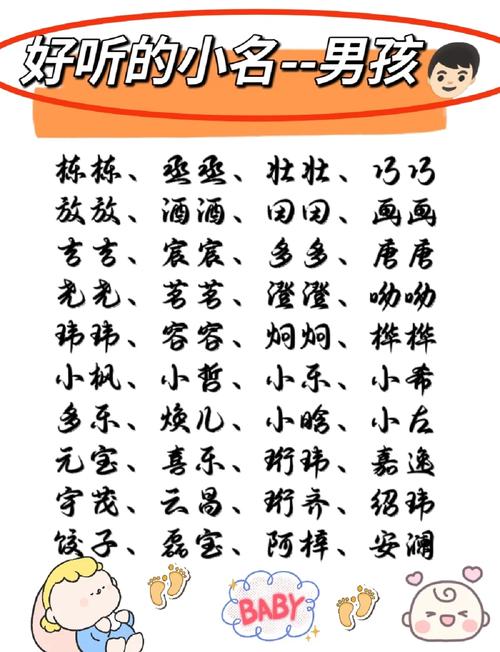 好听的小名--男孩
栋栋、丞丞、壮壮、巧巧
放放、酒酒、田田、画画
吉吉、宸宸、多多、唐唐
尧尧、茗茗、澄澄、呦呦
玮玮、容容、炯炯、桦桦
小枫、小哲、小乐、小希
多乐、焕儿、小晗、小左
元宝、喜乐、珩玮、嘉逸
宇茂、云昌、珩齐、绍玮
饺子、磊宝、阿梓、安澜
BABY